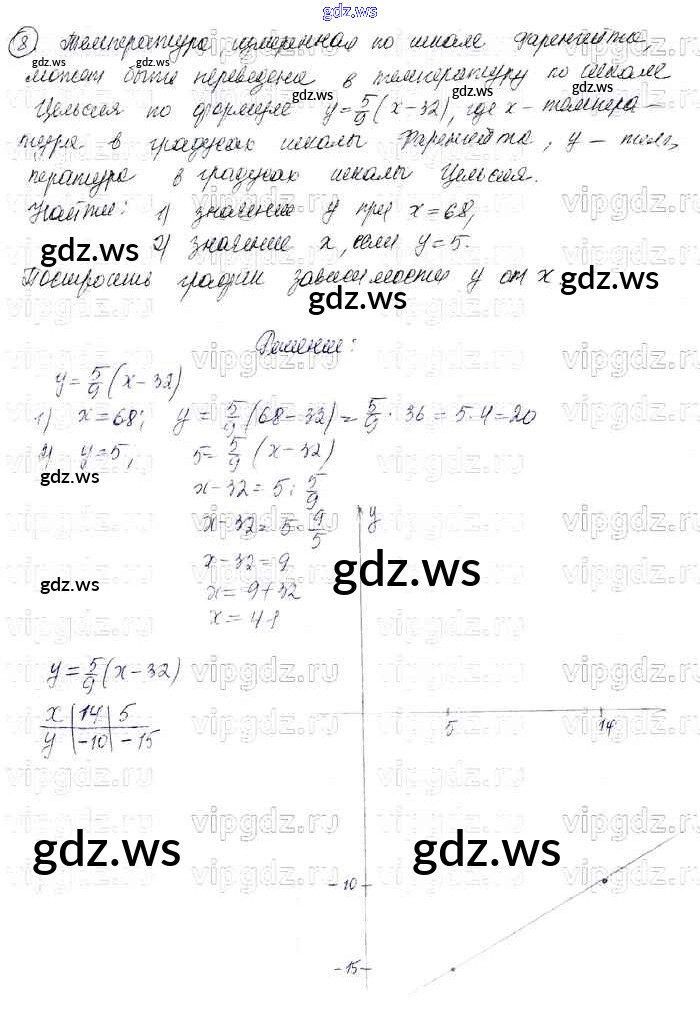 gdz.ws
8 Температура, измеренная по шкале Фаренгейта,
может быть переведена в температуру по шкале
Цельсия по формуле y = 5/9 (x-32), где x - темпера-
тура в градусах шкалы Фаренгейта, y - тем-
пература в градусах шкалы Цельсия.
Найти: 1) значение y при x=68;
2) значение x, если y=5.
Построить график зависимости y от x.
Решение:
y = 5/9 (x-32)
1) x=68; y = 5/9 (68-32) = 5/9 · 36 = 5·4 = 20
2) y=5; 5 = 5/9 (x-32)
x-32 = 5 : 5/9
x-32 = 5 · 9/5
x-32 = 9
x = 9+32
x = 41
y = 5/9 (x-32)
x | 14 | 5
y | -10 | -15
y
5 14
-10
-15
gdz.ws
vipgdz.ru